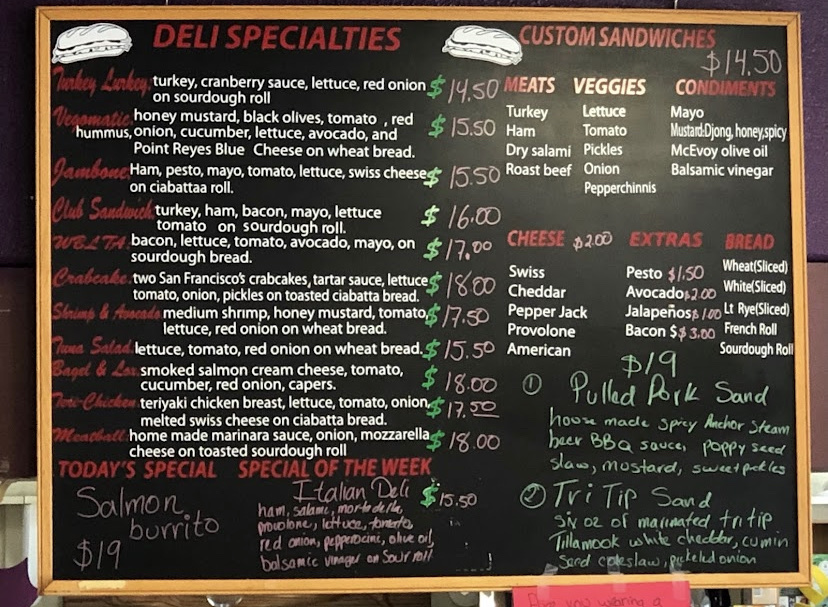 DELI SPECIALTIES
Turkey Lurkey: turkey, cranberry sauce, lettuce, red onion $14.50
on sourdough roll
Vegomatic: honey mustard, black olives, tomato , red $15.50
hummus, onion, cucumber, lettuce, avocado, and
Point Reyes Blue Cheese on wheat bread.
Jambone: Ham, pesto, mayo, tomato, lettuce, swiss cheese $15.50
on ciabattaa roll.
Club Sandwich: turkey, ham, bacon, mayo, lettuce $16.00
tomato on sourdough roll.
WBLTA: bacon, lettuce, tomato, avocado, mayo, on $17.00
sourdough bread.
Crabcake: two San Francisco's crabcakes, tartar sauce, lettuce $18.00
tomato, onion, pickles on toasted ciabatta bread.
Shrimp & Avocado medium shrimp, honey mustard, tomato, $17.50
lettuce, red onion on wheat bread.
Tuna Salad: lettuce, tomato, red onion on wheat bread. $15.50
Bagel & Lox: smoked salmon cream cheese, tomato, $18.00
cucumber, red onion, capers.
Teri-Chicken: teriyaki chicken breast, lettuce, tomato, onion, $17.50
melted swiss cheese on ciabatta bread.
Meatball: home made marinara sauce, onion, mozzarella $18.00
cheese on toasted sourdough roll
TODAY'S SPECIAL
Salmon
burrito
$19
SPECIAL OF THE WEEK
Italian Deli $15.50
ham, salami, mortadella,
provolone, lettuce, tomato,
red onion, pepperocini, olive oil,
balsamic vinager on Sour roll
CUSTOM SANDWICHES
$14.50
MEATS
Turkey
Ham
Dry salami
Roast beef
VEGGIES
Lettuce
Tomato
Pickles
Onion
Pepperchinnis
CONDIMENTS
Mayo
Mustard:Djong, honey,spicy
McEvoy olive oil
Balsamic vinegar
CHEESE $2.00
Swiss
Cheddar
Pepper Jack
Provolone
American
EXTRAS
Pesto $1.50
Avocado $2.00
Jalapeños $1.00
Bacon $ $3.00
BREAD
Wheat(Sliced)
White(Sliced)
Lt Rye(Sliced)
French Roll
Sourdough Roll
$19
① Pulled Pork Sand
house made spicy Anchor Steam
beer BBQ sauce, poppy seed
slaw, mustard, sweet pickles
② Tri Tip Sand
six oz of marinated tri tip
Tillamook white cheddar, cumin
seed coleslaw, pickeled onion
you wearing a